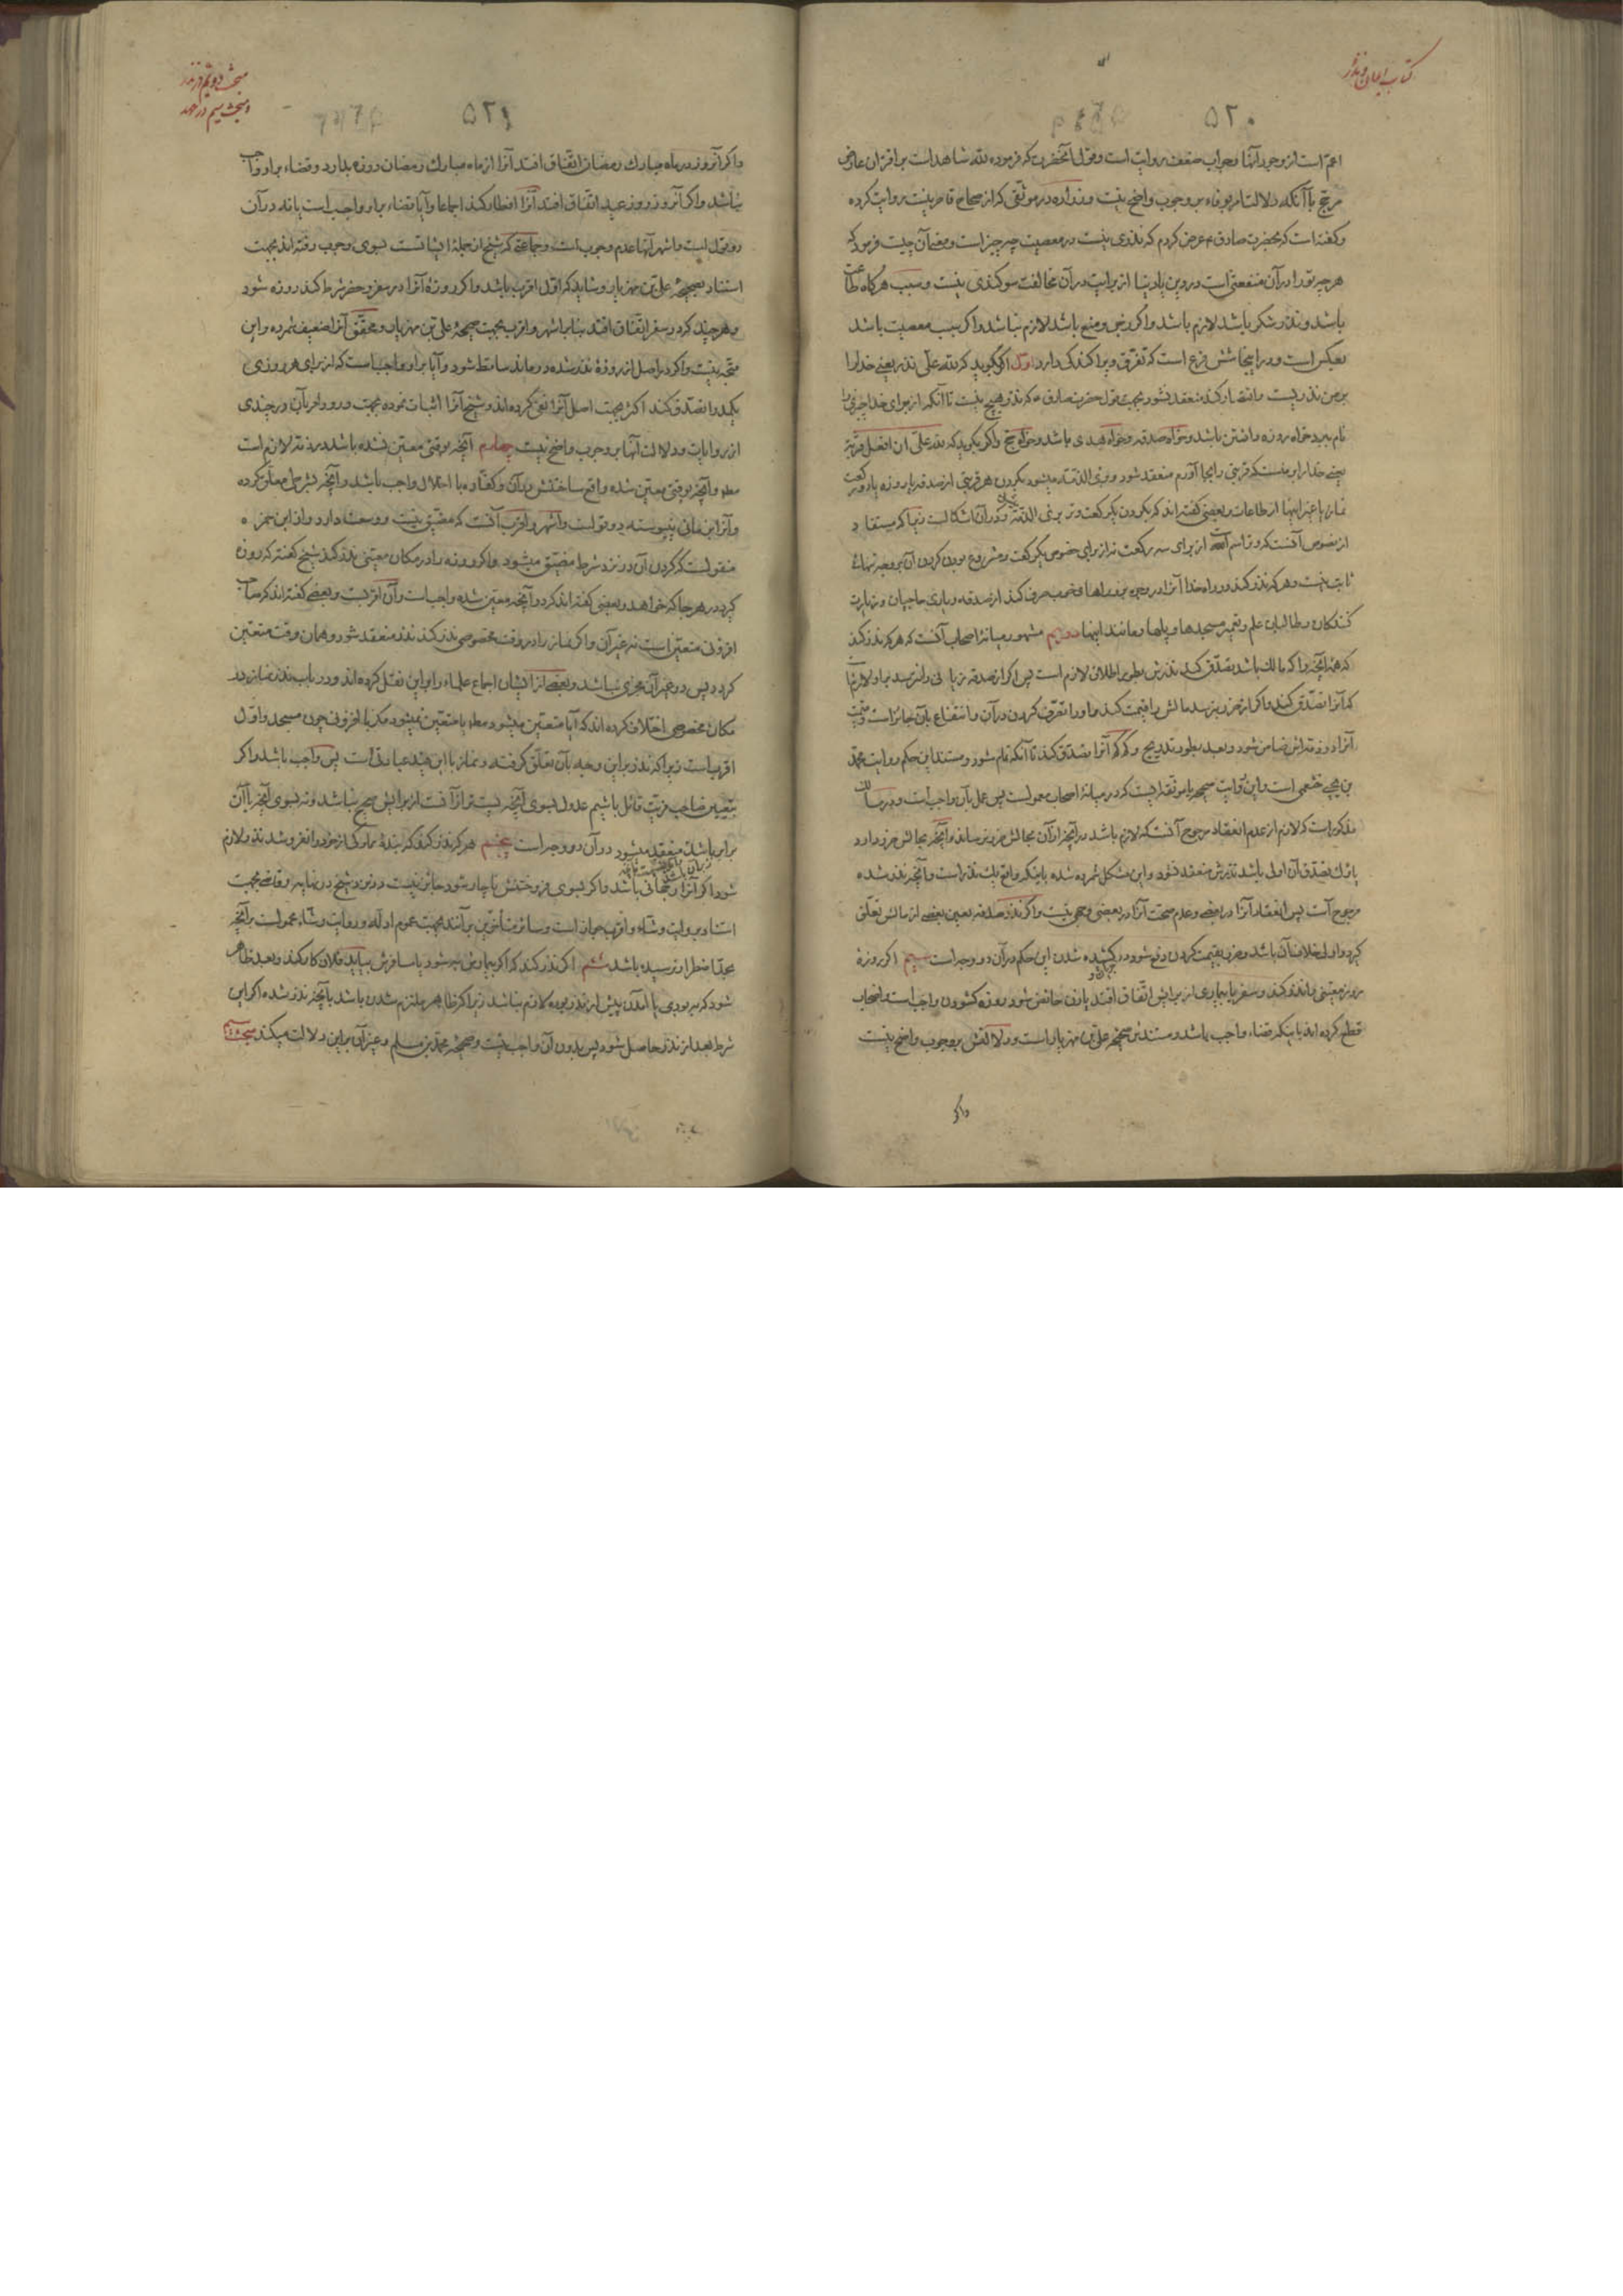 کتاب ایمان و نذر
۵۲۰
اعم است از وجوب آنها وجواب ضعف روایت است وقول آنحضرت که فرموده لله شاهد است بر اقتران عارض
مرجح با آنکه دلالت امر بوفاء بر وجوب واضح نیست وزراره در موثقی که از صحاح قاصر نیست روایت کرده
وگفته است که بحضرت صادق ع عرض کردم که نذری نیست در معصیت چه چیز است ومعنی آن چیست فرمود که
هر چه تو را در آن منفعتی است در دین یا دنیا از برایت در آن مخالفت سوگندی نیست وسبب هرگاه طاعت
باشد ونذر شکر باشد لازم باشد واگر زجر ومنع باشد لازم نباشد واگر سبب معصیت باشد
بعکس است ودر اینجا شش فرع است که تفرق وپراکندگی دارد اول اگر بگوید که لله علی نذر یعنی خدا را
بر من نذریست واقتصار کند منعقد نشود بجهت قول حضرت صادق ع که نذر هیچ نیست تا آنکه از برای خدا چیزی را
نام ببرد خواه روزه داشتن باشد وخواه صدقه وخواه هدی باشد وخواه حج واگر بگوید که لله علی ان افعل قربة
یعنی خدا را بر منست که قربتی را بجا آورم منعقد شود وبری الذمه میشود بکردن هر قربتی از صدقه یا روزه یا دو رکعت
نماز یا غیر اینها از طاعات وبعضی گفته اند که بکردن یک رکعت وتر بری الذمه شود ودر آن اشکالیست زیرا که مستفاد
از نصوص آنست که وتر اسم است از برای سه رکعت نه از برای خصوص یک رکعت ومشروع بودن کردن آن بروجه تنهائی
ثابت نیست وهر که نذر کند در راه خدا آنرا در وجوه بر وراهها وخوب صرف کند از صدقه ویاری حاجیان وزیارت
کنندگان وطالبان علم وتعمیر مسجدها وپلها ومانند اینها دویم مشهور میانهٔ اصحاب آنست که هر که نذر کند
که همه آنچه را که مالک باشد تصدق کند نذرش بطور اطلاق لازم است پس اگر از صدقه زیانی را نترسد بر او لازم باشد
که آنرا تصدق کند واگر از ضرر بترسد مالش را قیمت کند واو را تصرف کردن در آن وانتفاع بآن جایز است وقیمت
آنرا در ذمه اش ضامن شود وبعد بطور تدریج وکم کم آنرا تصدق کند تا آنکه تمام شود ومستند این حکم روایت محمد
بن یحیی خثعمی است واین روایت صحیحه یا موثقه ایست که در میانهٔ اصحاب معمولست پس عمل بآن واجب است ودر مسالک
مذکور است که لازم از عدم انعقاد مرجوح آنست که لازم باشد در آنچه از آن بحالش ضرر نرساند وآنچه بحالش ضرر دارد
یا ترک تصدق آن اولی باشد نذرش منعقد نشود واین مشکل شمرده شده باینکه واقع یک نذر است وآنچه نذر شده
مرجوح است پس انعقاد آنرا در بعضی وعدم صحت آنرا در بعضی وجهی نیست واگر نذر صدقه بعین بعضی از مالش تعلق
گیرد واولی خلاف آن باشد وضرر بقیمت کردن دفع شود در کشیده شدن این حکم در آن دو وجه است سیم اگر روزهٔ
روز معینی را نذر کند وسفر یا بیماری از برایش اتفاق افتد یا زن حائض شود روزه گشودن واجب است واصحاب
قطع کرده اند باینکه قضاء واجب باشد ومستندش صحیحه علی بن مهزیار است ودلالتش بر وجوب واضح نیست
واگر
مبحث دویم در نذر
ومبحث سیم در عهد
۵۲۱
واگر آنروز در ماه مبارک رمضان اتفاق افتد آنرا از ماه مبارک رمضان روزه بدارد وقضاء بر او واجب
نباشد واگر آنروز روز عید اتفاق افتد آنرا افطار کند اجماعا وآیا قضاء بر او واجب است یا نه در آن
دو قول است واشهر آنها عدم وجوب است وجماعتی که شیخ از جملهٔ ایشانست بسوی وجوب رفته اند بجهت
استناد بصحیحهٔ علی بن مهزیار وشاید که اول اقرب باشد واگر روزهٔ آنرا در سفر وحضر شرط کند روزه شود
وهر چند که در سفر اتفاق افتد بنابر اشهر واقرب بجهت صحیحهٔ علی بن مهزیار ومحقق آنرا ضعیف شمرده واین
متجه نیست واگر در اصل از روزهٔ نذر شده درماند ساقط شود وآیا بر او واجب است که از برای هر روزی
یکمد را تصدق کند اکثر بجهت اصل آنرا نفی کرده اند وشیخ آنرا اثبات نموده بجهت ورود امر بآن در چندی
از روایات ودلالت آنها بر وجوب واضح نیست چهارم آنچه بوقتی معین نشده باشد در ذمه لازم است
مطلقا وآنچه بوقتی معین شده واقع ساختنش در آن وکفاره با اخلال واجب باشد وآنچه بشرطی معلق کرده
وآنرا بزمانی نپیوسته دو قولست واشهر واقرب آنست که مضیق نیست ووسعت دارد واز ابن حمزه
منقولست که کردن آن در نزد شرط مضیق میشود واگر روزه را در مکان معینی نذر کند شیخ گفته که روزه
گیرد در هر جا که خواهد وبعضی گفته اند که در آنچه معین شده واجب است وآن اقربست وبعضی گفته اند که صاحب
افزونی متعین است نه غیر آن واگر نماز را در وقت مخصوصی نذر کند نذر منعقد شود وهمان وقت متعین
گردد پس در غیر آن مجزی نباشد وبعضی از ایشان اجماع علماء را بر این نقل کرده اند ودر باب نذر نماز در
مکان مخصوص اختلاف کرده اند که آیا متعین میشود مطلقا یا متعین نمیشود مگر با افزونی چون مسجد واول
اقربست زیرا که نذر بر این وجه بآن تعلق گرفته ونماز با این قید عبادتست پس واجب باشد واگر
بتعیین صاحب مزیت قائل باشیم عدول بسوی آنچه پست تر از آنست از برایش صحیح نباشد ونه بسوی آنچه با آن
برابر باشد منعقد میشود در آن دو وجه است پنجم هر که نذر کند که بندهٔ مملوکی از خود را نفروشد نذر لازم
شود اگر آنرا رجحانی باشد واگر بسوی فروختنش ناچار شود جایز نیست در نزد شیخ در نهایه وقاضی بجهت
استناد بروایت وشاء واقرب جواز است وسائر متأخرین بر آنند بجهت عموم ادله وروایت وشاء محمولست بر آنچه
بحد اضطرار نرسیده باشد ششم اگر نذر کند که اگر بیمارش به شود یا مسافرش بیاید فلان کار کند وبعد ظاهر
شود که بهبودی یا آمدن پیش از نذر بوده لازم نباشد زیرا که ظاهر ملتزم شدن باشد بآنچه نذر شده اگر این
شرط بعد از نذر حاصل شود پس بدون آن واجب نیست وصحیحه محمد بن مسلم وغیر آن بر این دلالت میکند مبحث سیم